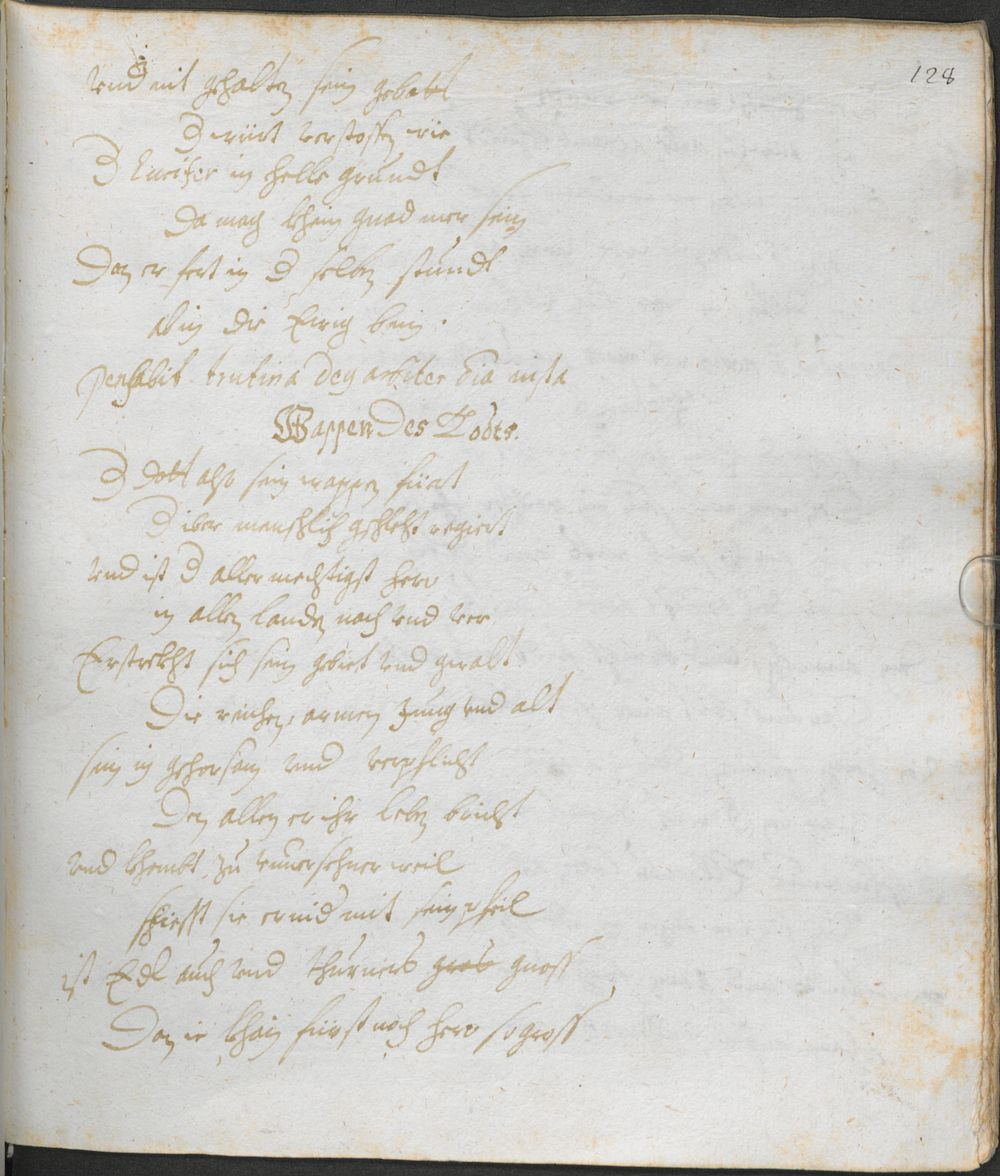 128
vnd nit gehalten sein gebott
D würt verstossen wie
D lucifer in helle grundt
Da mag khein gnad mer sein
Dan er fert in d selben stundt
in die Ewig bein.
Pensabit trutina deus arbiter omnia iusta
Wappen Des Todts.
D dott also sein wappen füert
D iber menschlich geschlecht regiert
vnd ist d aller mechtigst herr
in allen landen nach vnd ver
Erstrekht sich sein gebiet vnd gewalt
Die reichen, armen Jung vnd alt
sein in gehorsam vnd verpflicht
Den allen er ihr leben bricht
vnd khombt zu vnuersehner weil
schiesst sie er nid mit seim pfeil
ist Edl auch vnd thurniers gnoss
Dan ie khain fürst noch herr so gross